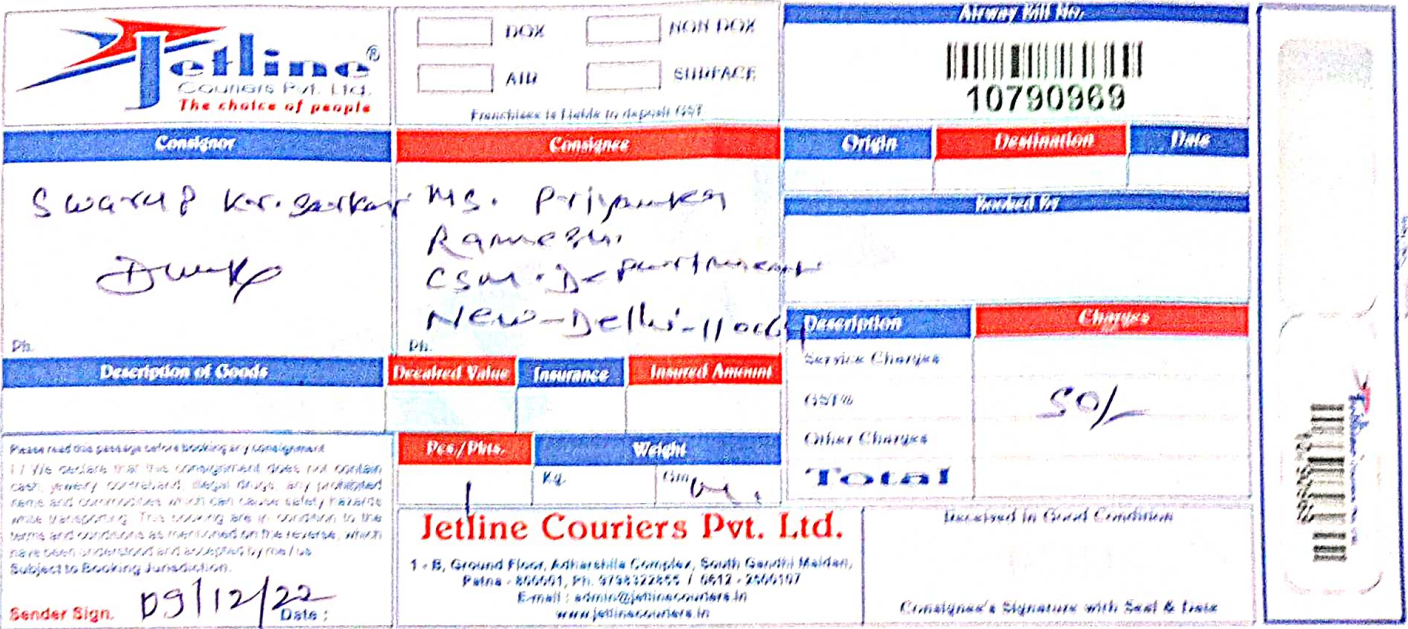 Jetline®
Couriers Pvt. Ltd.
The choice of people
DOX
NON DOX
AIR
SURFACE
Franchisee is Liable to deposit GST
Airway Bill No.
10790969
Consignor
Swarup Kr. Sarkar
Ph.
Consignee
Ms. Priyanka
Ramesh.
CSM. Department
New-Delhi-
Ph.
Origin
Destination
Date
Booked By
Description of Goods
Decalred Value
Insurance
Insured Amount
Description
Charges
Service Charges
GST%
Other Charges
Total
50/-
Please read this passage before booking any consignment
I / We declare that this consignment does not contain
cash, jewelry, contraband, illegal drugs, any prohibited
items and commodities which can cause safety hazards
while transporting. This booking are in condition to the
terms and conditions as mentioned on the reverse, which
have been understood and accepted by me / us
Subject to Booking Jurisdiction.
Sender Sign.
09/12/22
Date :
Pcs./Pkts.
Weight
1
Kg.
Gm
Jetline Couriers Pvt. Ltd.
1 - B, Ground Floor, Adharshila Complex, South Gandhi Maidan,
Patna - 800001, Ph. 9798322855 / 0612 - 2500107
E-mail : admin@jetlinecouriers.in
www.jetlinecouriers.in
Received in Good Condition
Consignee's Signature with Seal & Date